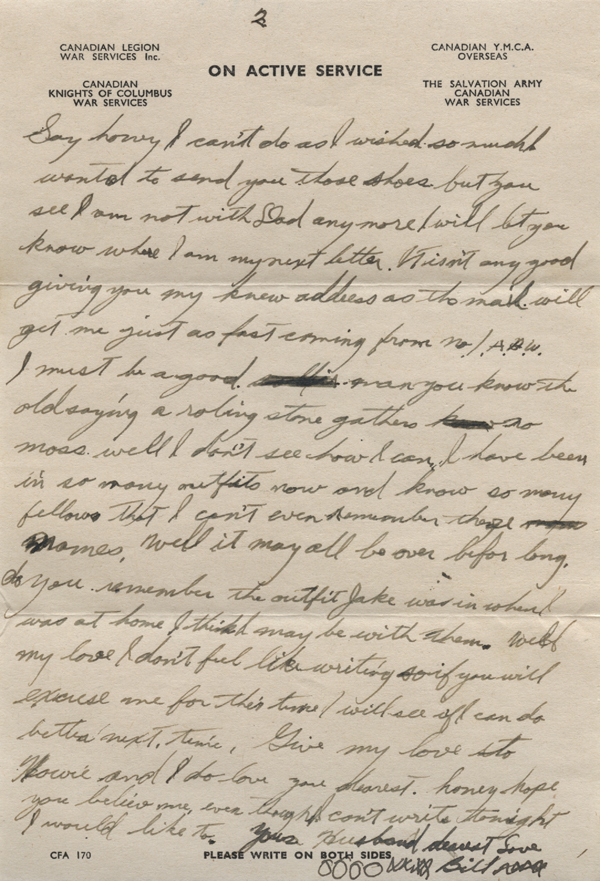 2
CANADIAN LEGION
WAR SERVICES Inc.
CANADIAN
KNIGHTS OF COLUMBUS
WAR SERVICES
ON ACTIVE SERVICE
CANADIAN Y.M.C.A.
OVERSEAS
THE SALVATION ARMY
CANADIAN
WAR SERVICES
Say honey I can't do as I wished so much I
wanted to send you those shoes but you
see I am not with Dad any more I will let you
know where I am my next letter. It isn't any good
giving you my knew address as the mail will
get me just as fast coming from no 1.
I must be a good man you know the
old saying a roling stone gathers no
moss. well I don't see how I can, I have been
in so many outfits now and know so many
fellows that I can't even remember these
names, Well it may all be over befor long.
do you remember the outfit Jake was in when I
was at home I think I may be with them. Well
my love I don't feel like writing so if you will
excuse me for this time I will see if I can do
better next, time, Give my love to
Howie and I do love you dearest. honey hope
you believe me, even though I can't write tonight
I would like to. Your Husband dearest love
Bill xxxx
OOOO
CFA 170
PLEASE WRITE ON BOTH SIDES